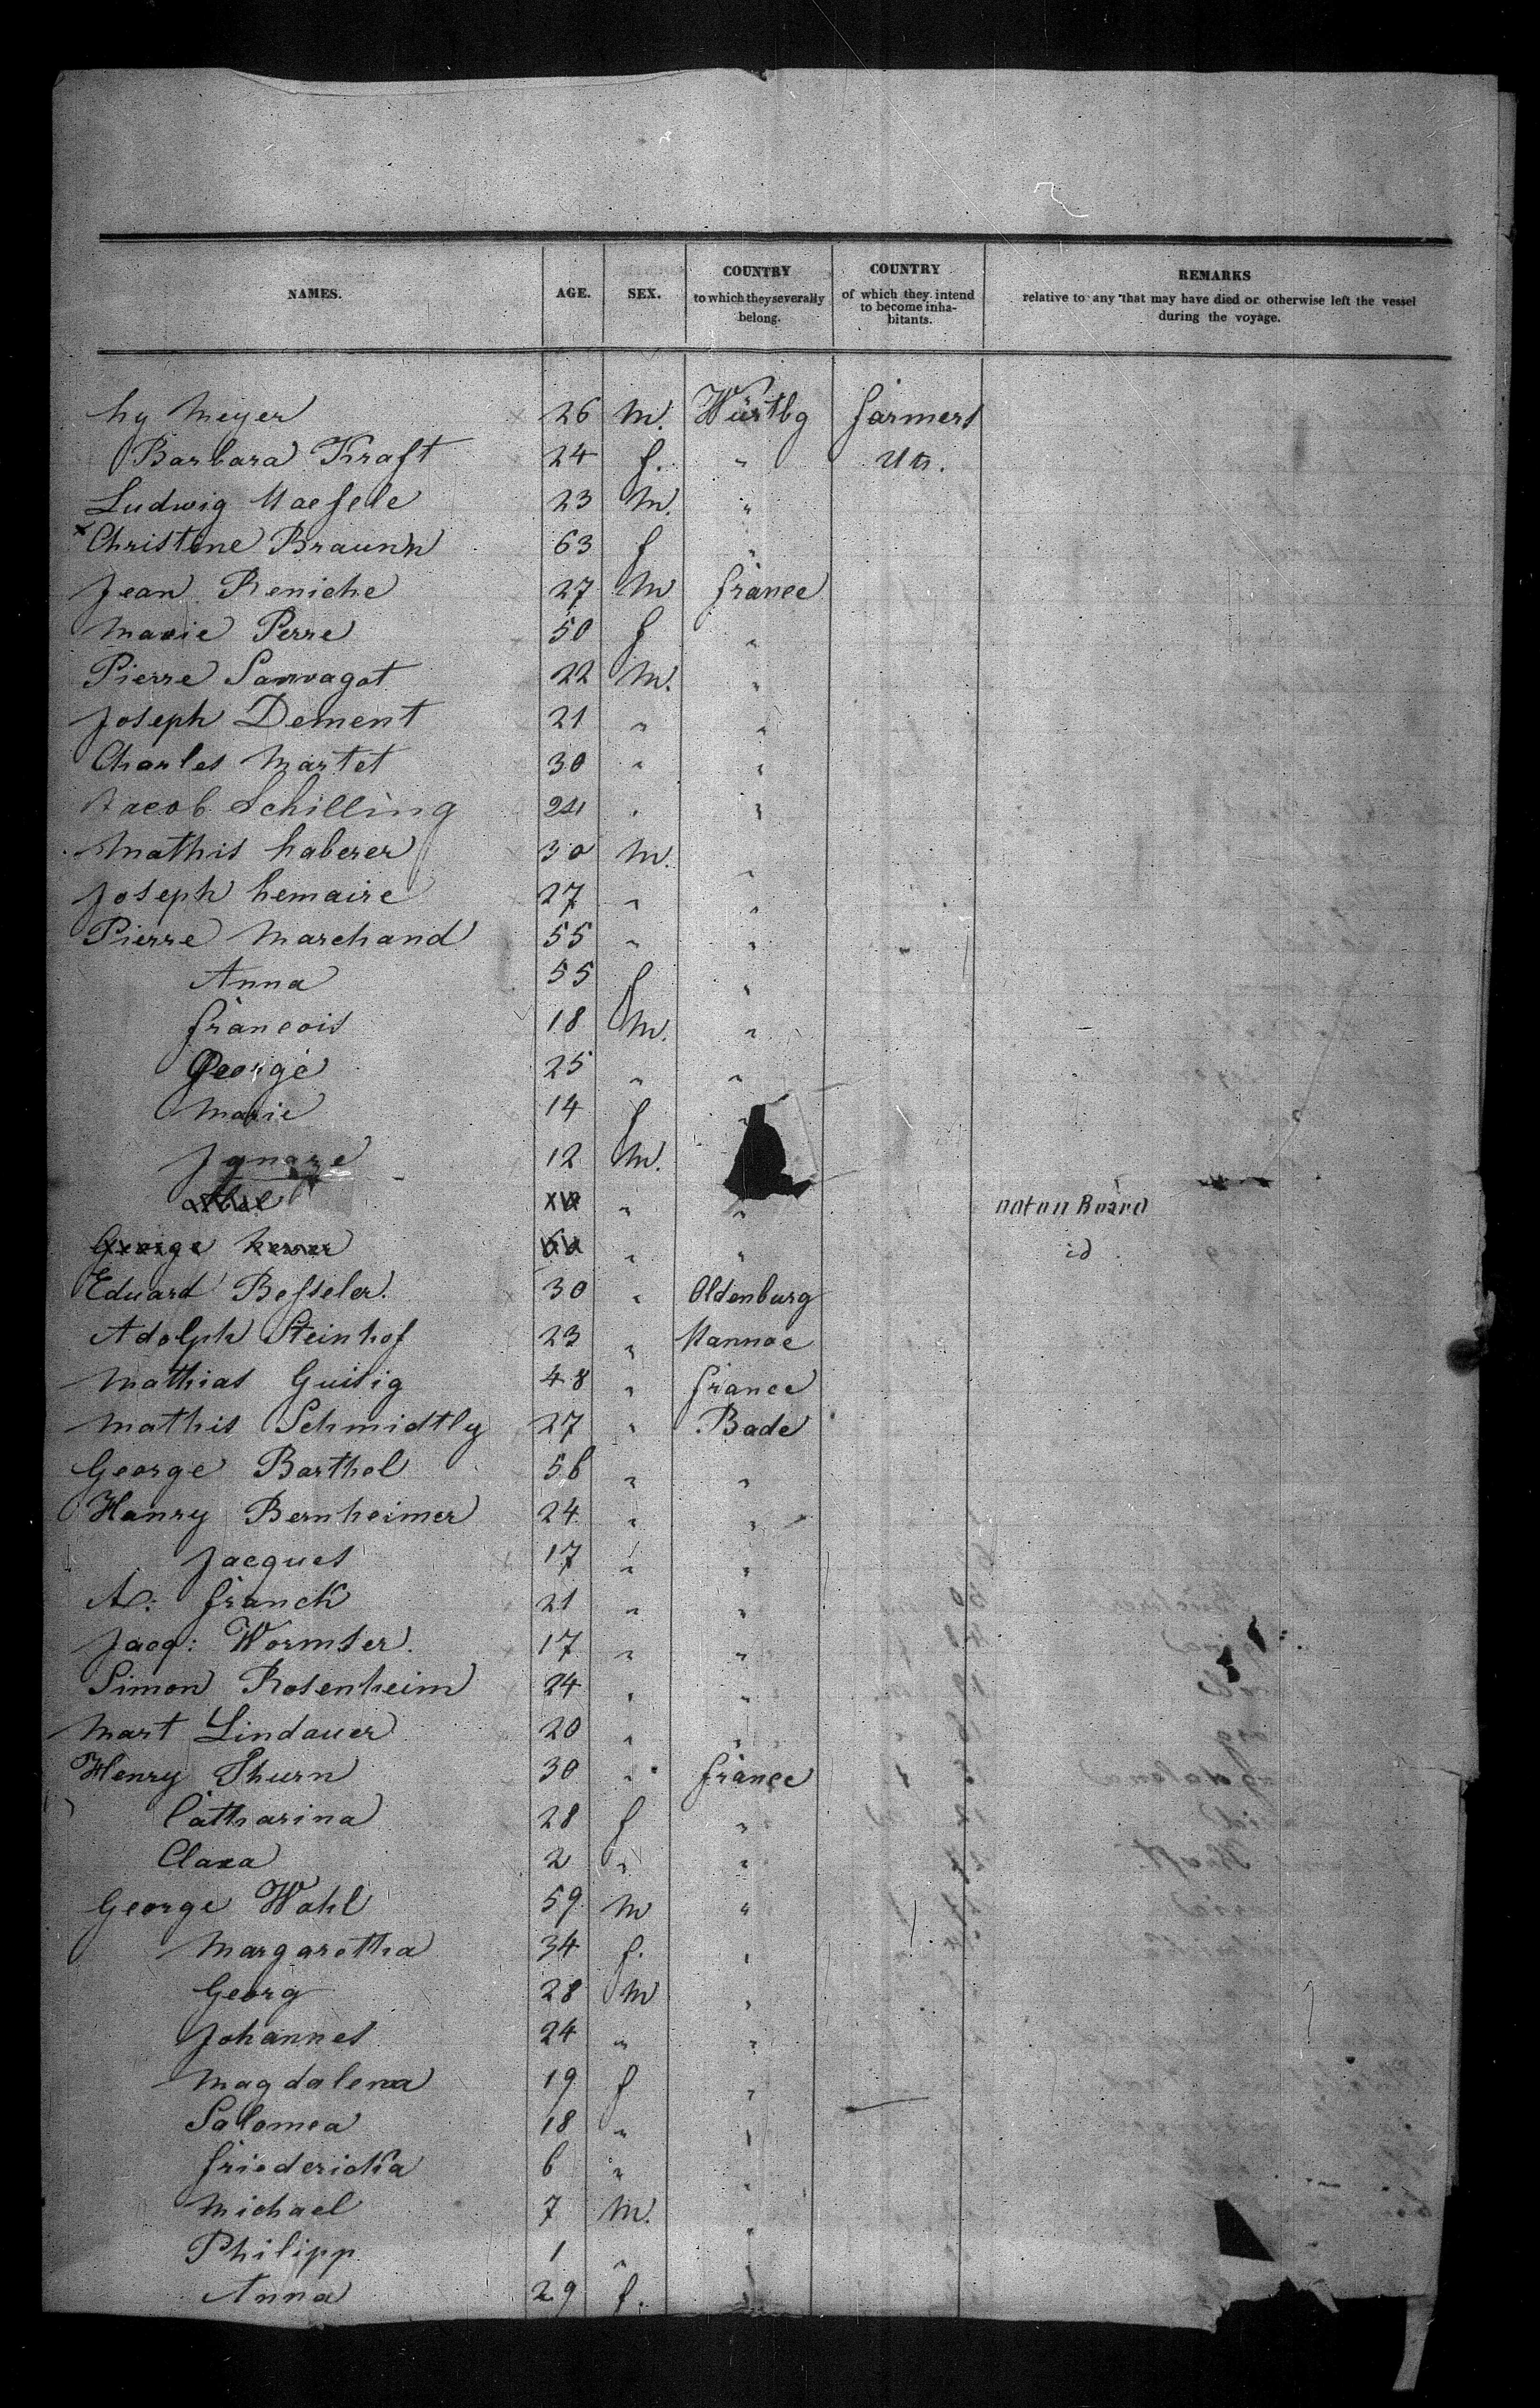 NAMES. AGE. SEX. COUNTRY to which they severally belong. COUNTRY of which they intend to become inhabitants. REMARKS relative to any that may have died or otherwise left the vessel during the voyage.
Hy Meyer 26 M. Würtbg farmers
Barbara Kraft 24 f. " Us.
Ludwig Haefele 23 M. "
Christine Braunn 63 f "
Jean Reniche 27 M france
Marie Perre 50 f "
Pierre Sauvagot 22 M. "
Joseph Dement 21 " "
Charles Martet 30 " "
Jacob Schilling 24 " "
Mathis haberer 30 M. "
Joseph Lemaire 27 " "
Pierre Marchand 55 " "
Anna 55 f "
francois 18 M. "
George 25 " "
Marie 14 f "
Jgnaze 12 M.
" " not on Board
George " " id
Eduard Besseler. 30 " Oldenburg
Adolph Steinhof 23 " Hannoe
Mathias Guisig 48 " france
Mathis Schmidtly 27 " Bade
George Barthol 56 " "
Hanry Bernheimer 24 " "
Jacques 17 " "
A: franck 21 " "
Jacq: Wormser. 17 " "
Simon Rosenheim 24 " "
Mart Lindauer 20 " "
Henry Thurn 30 " france
Catharina 28 f "
Clara 2 " "
George Wahl 59 M "
Margaretha 34 f. "
Georg 28 M "
Johannes 24 " "
Magdalena 19 f "
Salomea 18 " "
friedericka 6 " "
Michael 7 M. "
Philipp 1 " "
Anna 29 f. "